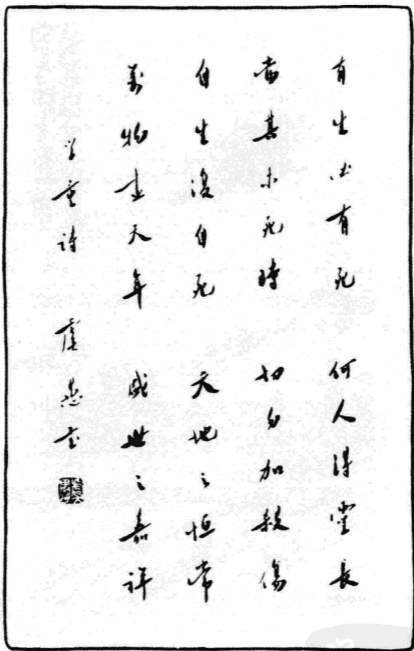 有生必有死 何人得灵長
當其未死時 切勿加殺傷
自生復自死 天地之恒常
萬物盡天年 盛世之嘉祥
学童詩 虞愚書